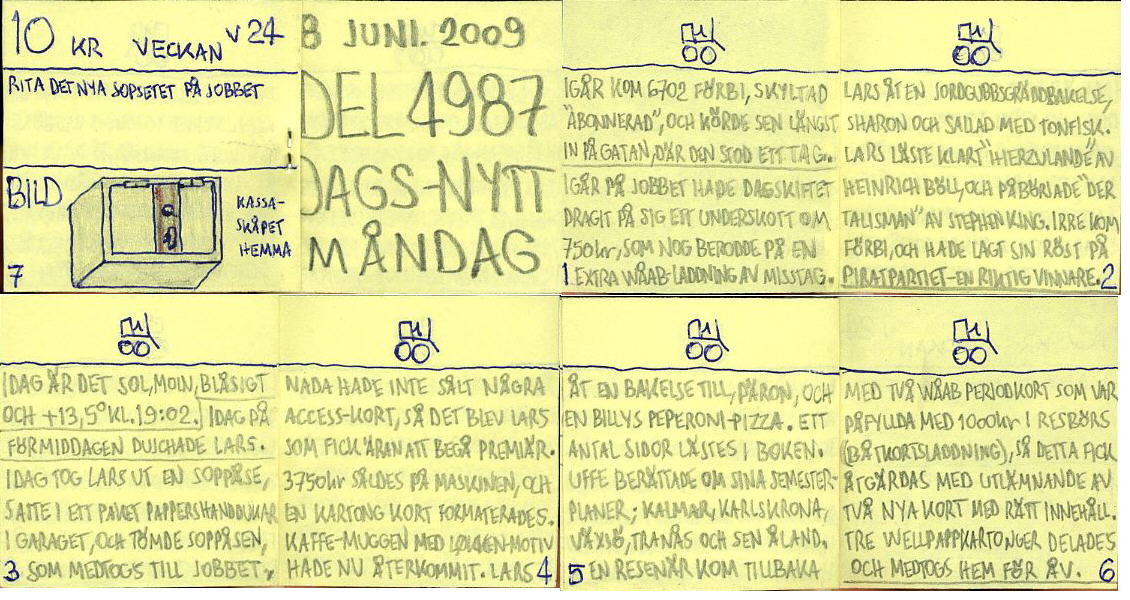 10 KR VECKAN V 24
RITA DET NYA SOPSETET PÅ JOBBET
BILD
KASSA-
SKÅPET
HEMMA
7
8 JUNI. 2009
DEL 4987
DAGS-NYTT
MÅNDAG
IGÅR KOM 6702 FÖRBI, SKYLTAD
"ABONNERAD", OCH KÖRDE SEN LÄNGST
IN PÅ GATAN, DÄR DEN STOD ETT TAG.
IGÅR PÅ JOBBET HADE DAGSKIFTET
DRAGIT PÅ SIG ETT UNDERSKOTT OM
750kr, SOM NOG BERODDE PÅ EN
EXTRA WÅAB-LADDNING AV MISSTAG.
1
LARS ÅT EN JORDGUBBSGRÄDDBAKELSE,
SHARON OCH SALLAD MED TONFISK.
LARS LÄSTE KLART "HIERZULANDE" AV
HEINRICH BÖLL, OCH PÅBÖRJADE "DER
TALISMAN" AV STEPHEN KING. IRRE KOM
FÖRBI, OCH HADE LAGT SIN RÖST PÅ
PIRATPARTIET-EN RIKTIG VINNARE.
2
IDAG ÄR DET SOL, MOLN, BLÅSIGT
OCH +13,5° KL. 19:02. IDAG PÅ
FÖRMIDDAGEN DUSCHADE LARS.
IDAG TOG LARS UT EN SOPPÅSE,
SATTE I ETT PAKET PAPPERSHANDDUKAR
I GARAGET, OCH TÖMDE SOPPÅSEN,
3 SOM MEDTOGS TILL JOBBET.
NADA HADE INTE SÅLT NÅGRA
ACCESS-KORT, SÅ DET BLEV LARS
SOM FICK ÄRAN ATT BEGÅ PREMIÄR.
3750kr SÅLDES PÅ MASKINEN, OCH
EN KARTONG KORT FORMATERADES.
KAFFE-MUGGEN MED MOTIV
HADE NU ÅTERKOMMIT. LARS 4
ÅT EN BAKELSE TILL, PÄRON, OCH
EN BILLYS PEPERONI-PIZZA. ETT
ANTAL SIDOR LÄSTES I BOKEN.
UFFE BERÄTTADE OM SINA SEMESTER-
PLANER; KALMAR, KARLSKRONA,
VÄXJÖ, TRANÅS OCH SEN ÅLAND.
5 EN RESENÄR KOM TILLBAKA
MED TVÅ WÅAB PERIODKORT SOM VAR
PÅFYLLDA MED 1000kr I RESBÖRS
(BÅTKORTSLADDNING), SÅ DETTA FICK
ÅTGÄRDAS MED UTLÄMNANDE AV
TVÅ NYA KORT MED RÄTT INNEHÅLL.
TRE WELLPAPPKARTONGER DELADES
OCH MEDTOGS HEM FÖR ÅV. 6